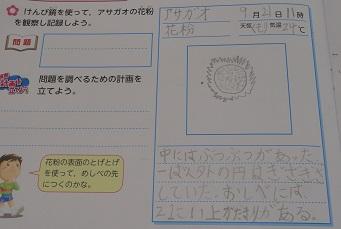 けんび鏡を使って、アサガオの花粉を観察し記録しよう。
問題
問題を調べるための計画を立てよう。
花粉の表面のとげとげを使って、めしべの先につくのかな。
アサガオ
花粉
9月21日11時
天気(くもり)気温24℃
中にはぶつぶつがあった。
一ばん外の円はぎざぎざ
していた。おしべには
2まとい上かたまりがある。